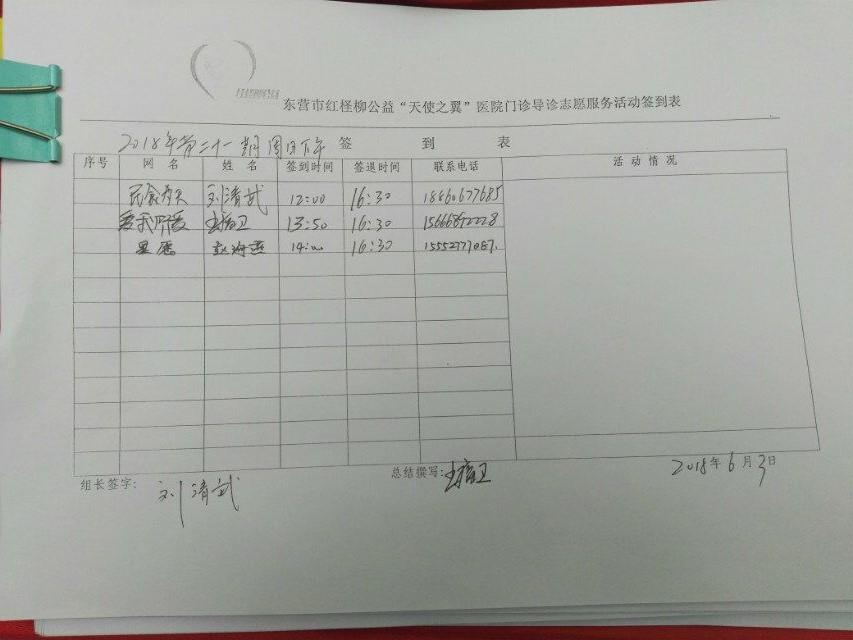 东营市红柽柳公益“天使之翼”医院门诊导诊志愿服务活动签到表
2018年第二十一期 周日下午 签 到 表
序号 网 名 姓 名 签到时间 签退时间 联系电话 活 动 情 况
刘清武 12:00 16:30 18660677685
爱我所爱 卫 13:50 16:30
星愿 赵海燕 14:00 16:30 15552777087.
组长签字: 刘清武 总结撰写: 卫 2018年6月3日